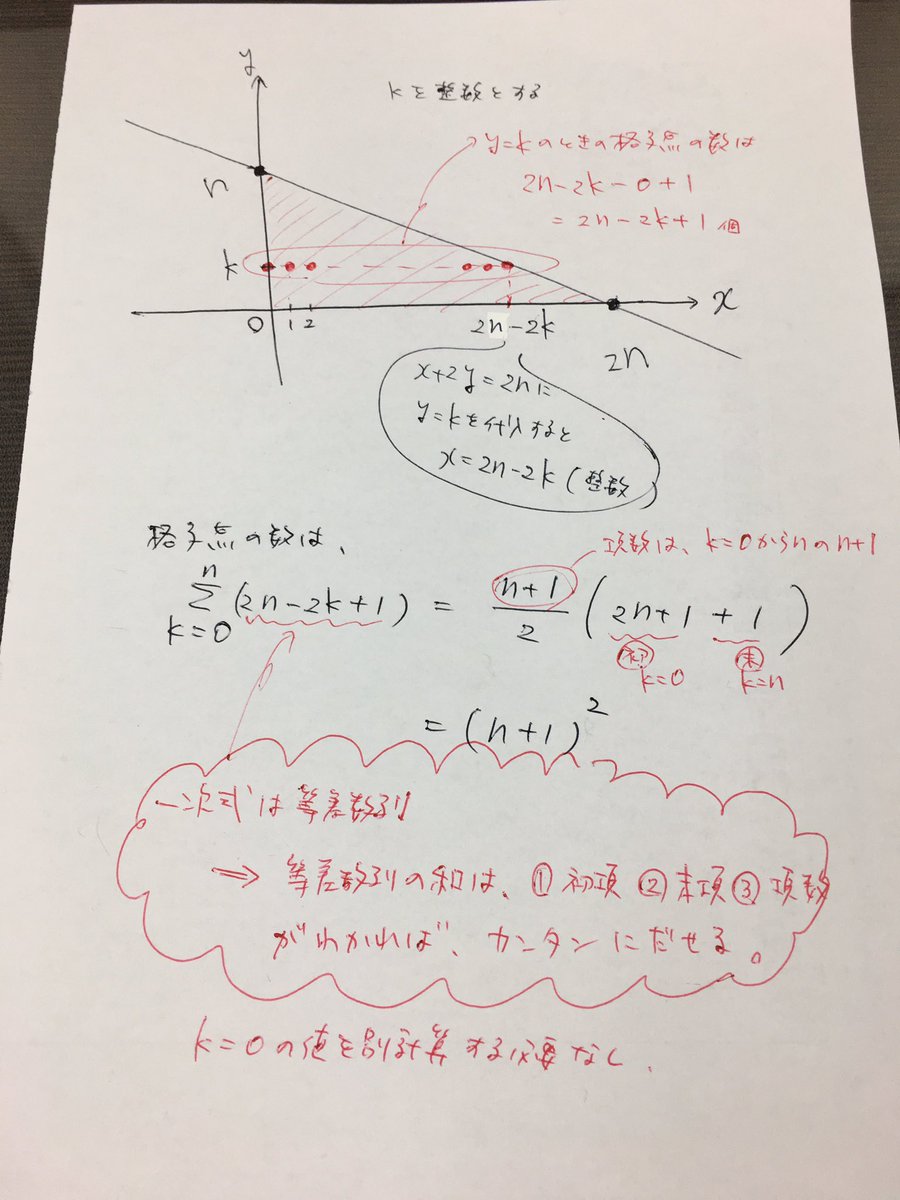 y
kを整数とする
y=kのときの格子点の数は
2n-2k-0+1
= 2n-2k+1 個
n
k
0 1 2 2n-2k 2n x
x+2y=2nに
y=kを代入すると
x=2n-2k (整数)
格子点の数は、
項数は、k=0からnのn+1
\sum_{k=0}^{n} (2n-2k+1) = \frac{n+1}{2} (2n+1 + 1)
初 末
k=0 k=n
= (n+1)^2
一次式は等差数列
⇒ 等差数列の和は、① 初項 ② 末項 ③ 項数
がわかれば、カンタンにだせる。
k=0の値を別計算する必要なし.